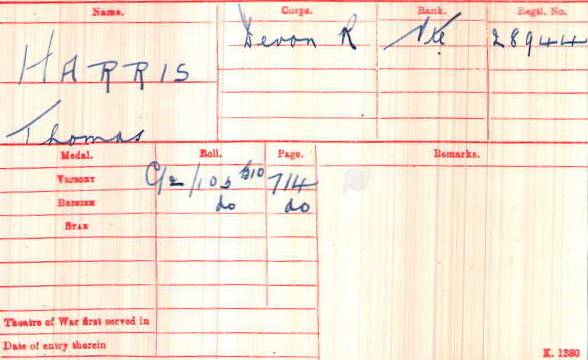 Name. Corps. Rank. Regtl. No.
HARRIS Devon R Pte 28944
Thomas
Medal. Roll. Page. Remarks.
VICTORY C/2/103 B10 714
BRITISH do do
STAR
Theatre of War first served in
Date of entry therein
K. 1380